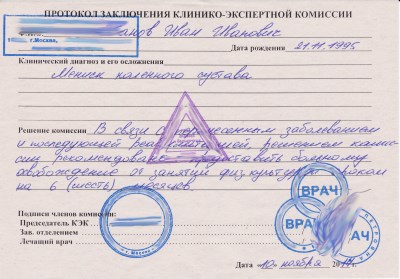 ПРОТОКОЛ ЗАКЛЮЧЕНИЯ КЛИНИКО-ЭКСПЕРТНОЙ КОМИССИИ
Иван Иванович
г.Москва,
Дата рождения 21.11.1995
Клинический диагноз и его осложнения
Мениск коленного сустава
Решение комиссии В связи с перенесенным заболеванием
и последующей реабилитацией, решением комис-
сии рекомендовано предоставить больному
освобождение от занятий физ. культурой сроком
на 6 (шесть) месяцев.
ВРАЧ
Подписи членов комиссии:
Председатель КЭК
ВРАЧ
Зав. отделением
Лечащий врач
г. Москва
Дата «10» ноября